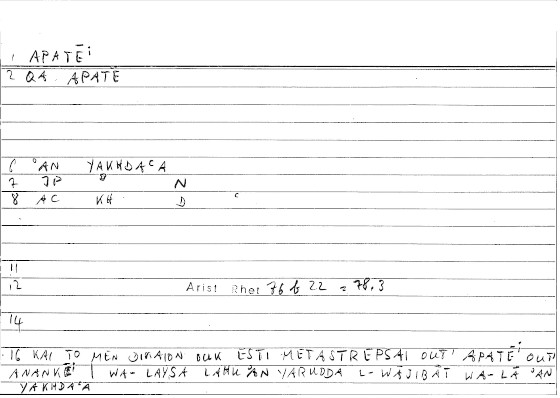 1 APATĒⁱ
2 QA APATĒ
6 ᵓAN YAKHDAᶜA
7 JP ᵓ N
8 AC KH D ᶜ
11
12 Arist Rhet 76 b 22 = 78.3
14
16 KAI TO MEN DIKAION OUK ESTI METASTREPSAI OUT' APATĒⁱ OUT'
ANANKĒⁱ | WA-LAYSA LAHU ᵓAN YARUDDA L-WĀJIBĀT WA-LĀ ᵓAN
YAKHDAᶜA